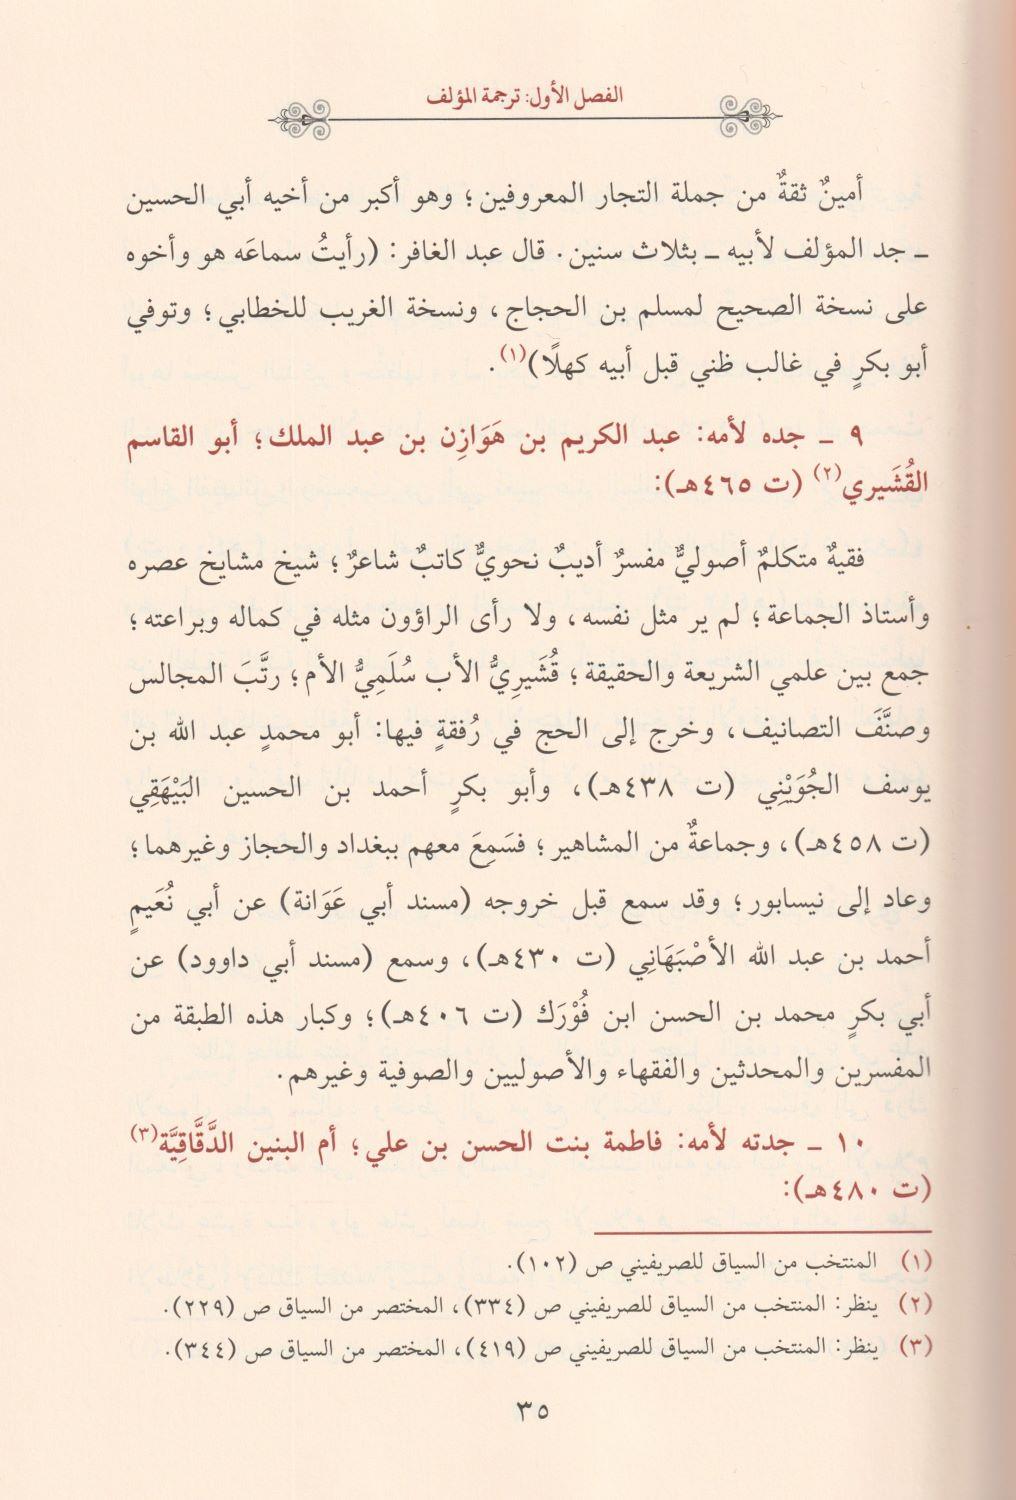 الفصل الأول: ترجمة المؤلف
أمينٌ ثقةٌ من جملة التجار المعروفين؛ وهو أكبر من أخيه أبي الحسين
ـ جد المؤلف لأبيه ـ بثلاث سنين. قال عبد الغافر: (رأيتُ سماعَه هو وأخوه
على نسخة الصحيح لمسلم بن الحجاج، ونسخة الغريب للخطابي؛ وتوفي
أبو بكرٍ في غالب ظني قبل أبيه كهلًا)(١).
٩ ـ جده لأمه: عبد الكريم بن هَوَازِن بن عبد الملك؛ أبو القاسم
القُشَيري(٢) (ت ٤٦٥هـ):
فقيهٌ متكلمٌ أصوليٌّ مفسرٌ أديبٌ نحويٌّ كاتبٌ شاعرٌ؛ شيخ مشايخ عصره
وأستاذ الجماعة؛ لم ير مثل نفسه، ولا رأى الراؤون مثله في كماله وبراعته؛
جمع بين علمي الشريعة والحقيقة؛ قُشَيرِيُّ الأب سُلَمِيُّ الأم؛ رتَّبَ المجالس
وصنَّفَ التصانيف، وخرج إلى الحج في رُفقةٍ فيها: أبو محمدٍ عبد الله بن
يوسف الجُوَيْنِي (ت ٤٣٨هـ)، وأبو بكرٍ أحمد بن الحسين البَيْهَقِي
(ت ٤٥٨هـ)، وجماعةٌ من المشاهير؛ فسَمِعَ معهم ببغداد والحجاز وغيرهما؛
وعاد إلى نيسابور؛ وقد سمع قبل خروجه (مسند أبي عَوَانة) عن أبي نُعَيمٍ
أحمد بن عبد الله الأصْبَهَانِي (ت ٤٣٠هـ)، وسمع (مسند أبي داوود) عن
أبي بكرٍ محمد بن الحسن ابن فُوْرَك (ت ٤٠٦هـ)؛ وكبار هذه الطبقة من
المفسرين والمحدثين والفقهاء والأصوليين والصوفية وغيرهم.
١٠ ـ جدته لأمه: فاطمة بنت الحسن بن علي؛ أم البنين الدَّقَّاقِيَّة(٣)
(ت ٤٨٠هـ):
(١) المنتخب من السياق للصريفيني ص (١٠٢).
(٢) ينظر: المنتخب من السياق للصريفيني ص (٣٣٤)، المختصر من السياق ص (٢٢٩).
(٣) ينظر: المنتخب من السياق للصريفيني ص (٤١٩)، المختصر من السياق ص (٣٤٤).
٣٥